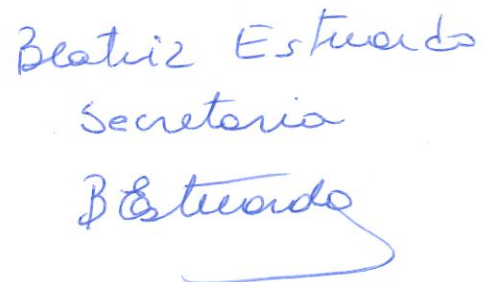 Beatriz Estuardo
Secretaria
B Estuardo